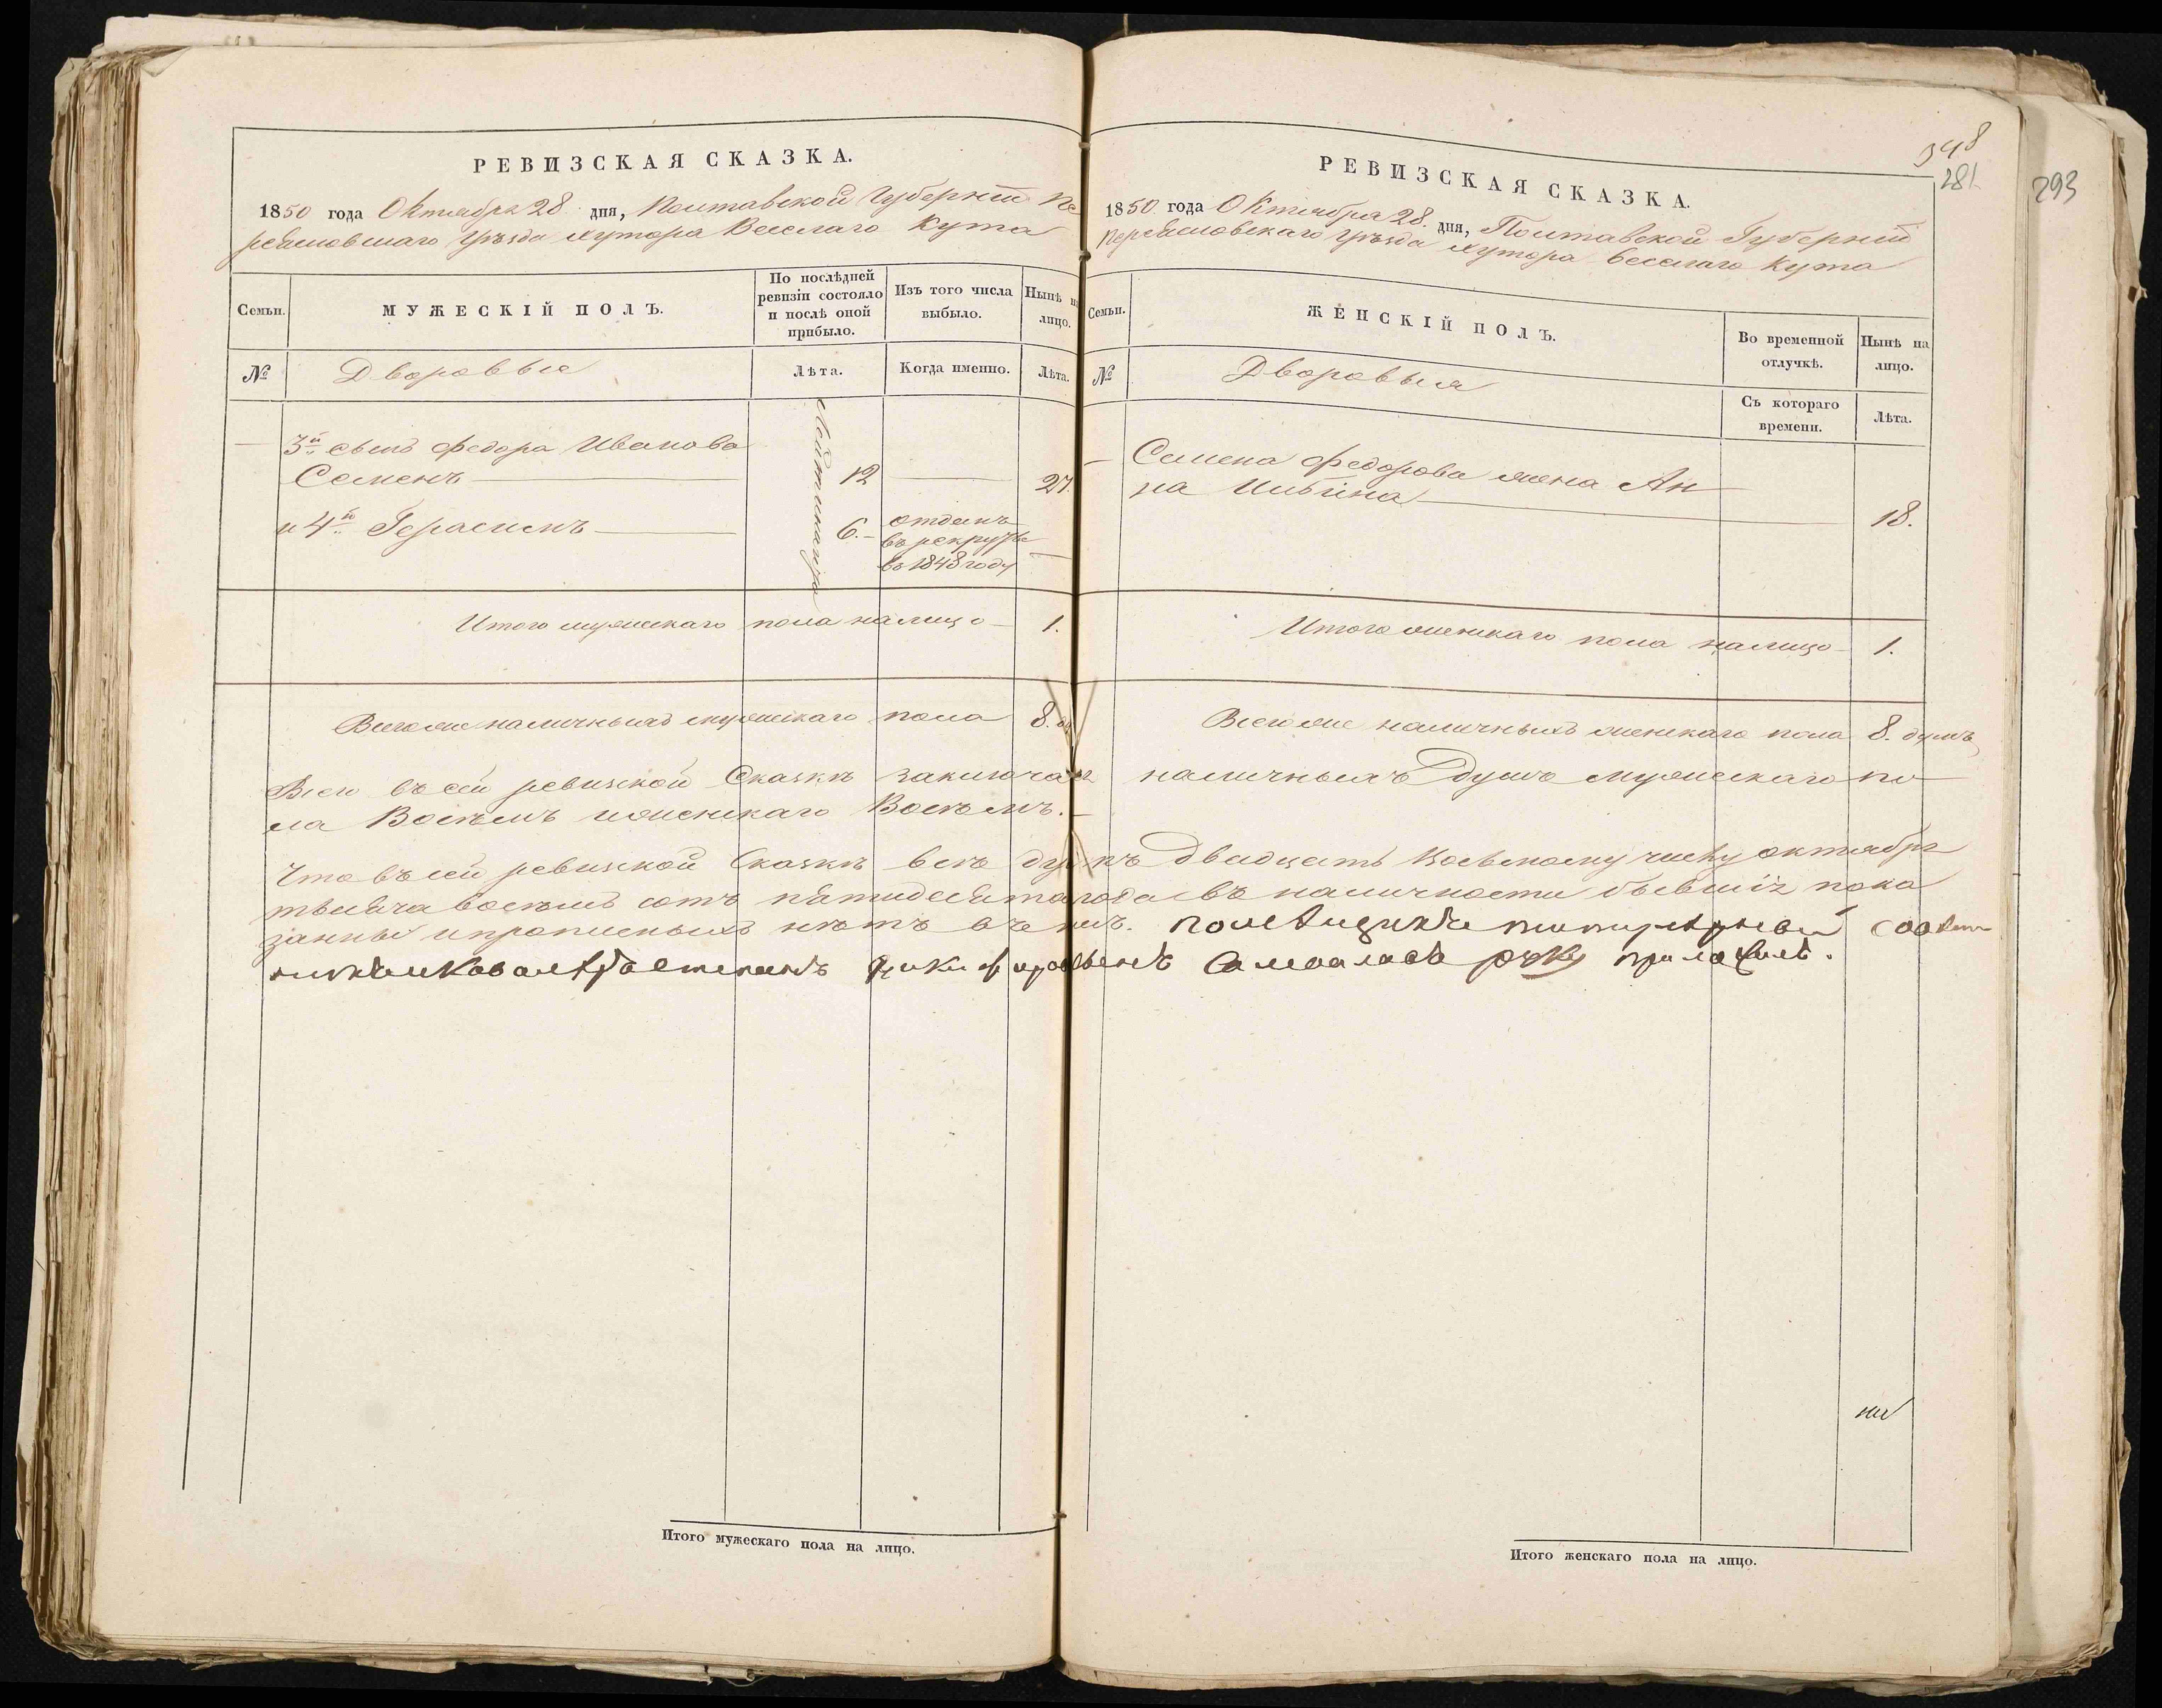 РЕВИЗСКАЯ СКАЗКА.
1850 года Октября 28 дня, Полтавской Губернiи Пе
реяславскаго уѣзда хутора Веселаго Кута
Семьи.
МУЖЕСКІЙ ПОЛЪ.
По послѣдней ревизіи состояло и послѣ оной прибыло.
Изъ того числа выбыло.
Нынѣ на лицо.
№
Дворовые
Лѣта.
Когда именно.
Лѣта.
3й сынъ Федора Иванова
Семенъ
12
27.
и 4й Герасимъ
6.
отданъ
въ рекруты
въ 1848 году
Итого мужескаго пола налицо
1.
Всего же наличныхъ мужескаго пола
8.
948
281
293
РЕВИЗСКАЯ СКАЗКА.
1850 года Октября 28 дня, Полтавской Губернiи
Переяславскаго уѣзда хутора Веселаго Кута
Семьи.
ЖЕНСКІЙ ПОЛЪ.
Во временной отлучкѣ.
Нынѣ на лицо.
№
Дворовыя
Съ котораго времени.
Лѣта.
Семена Федорова жена Ан
на
18.
Итого женскаго пола налицо
1.
Всего же наличныхъ женскаго пола 8. душъ
Всего въ сей ревизской Сказкѣ заключая наличныхъ Душъ мужескаго по
ла Восемь и женскаго Восемь.
Что въ сей ревизской Сказкѣ всѣ Двадцать Восьмому числу октября
тысяча восемь сотъ пятидесятаго года въ наличности бывшiя пока
заны и прописныхъ нѣтъ въ томъ.
руку приложилъ.
Итого мужескаго пола на лицо.
Итого женскаго пола на лицо.